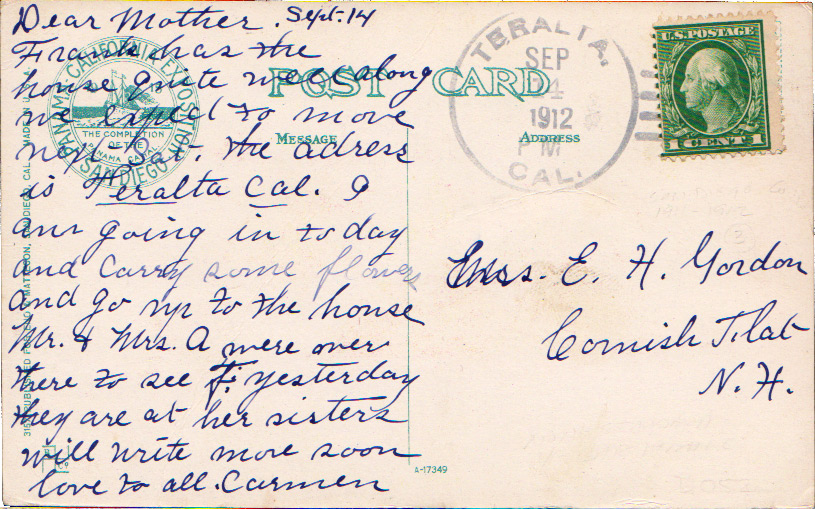 Dear Mother. Sept. 14
Frank has the
house quite well along
we expect to move
next Sat. The adress
is Teralta Cal. I
am going in today
and carry some flowers
and go up to the house
Mr. & Mrs. A were over
there to see F. yesterday
they are at her sisters
will write more soon
love to all. Carmen
POST CARD
MESSAGE
ADDRESS
PANAMA-CALIFORNIA EXPOSITION
THE COMPLETION
OF THE
PANAMA CANAL
SAN DIEGO
MADE IN U.S.A.
TERALTA.
SEP
14
1912
P M
CAL.
U.S. POSTAGE
1 CENT 1
Mrs. E. H. Gordon
Cornish Flat
N. H.
A-17349